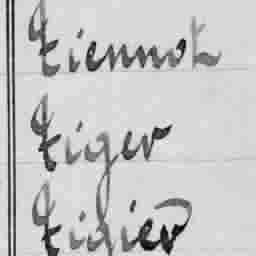 Tiennot
Tiger
Tigier